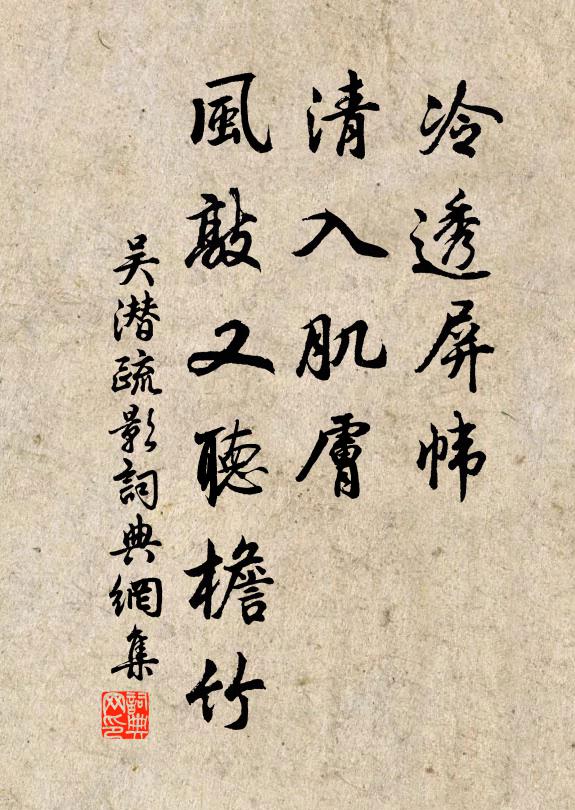 冷透屏幃
清入肌膚
風敲又聽檐竹
吴潛疏影詞典網集
詞典网印